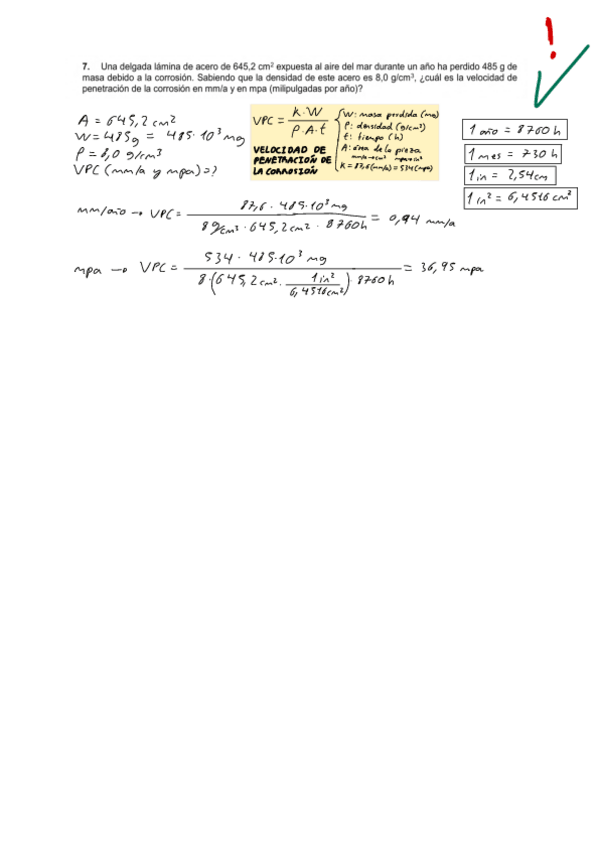 !
7. Una delgada lámina de acero de 645,2 cm² expuesta al aire del mar durante un año ha perdido 485 g de
masa debido a la corrosión. Sabiendo que la densidad de este acero es 8,0 g/cm³, ¿cuál es la velocidad de
penetración de la corrosión en mm/a y en mpa (milipulgadas por año)?
A = 645,2 cm²
W = 485g = 485·10³ mg
ρ = 8,0 g/cm³
VPC (mm/a y mpa) = ?
VPC = K·W / ρ·A·t
VELOCIDAD DE
PENETRACIÓN DE
LA CORROSIÓN
W: masa perdida (mg)
ρ: densidad (g/cm³)
t: tiempo (h)
A: área de la pieza
mm/a→cm² mpa→in²
K = 87,6 (mm/a) = 534 (mpa)
1 año = 8760 h
1 mes = 730 h
1 in = 2,54cm
1 in² = 6,4516 cm²
mm/año → VPC = 87,6 · 485·10³ mg / 8g/cm³ · 645,2cm² · 8760h = 0,94 mm/a
mpa → VPC = 534 · 485·10³ mg / 8·(645,2cm² · 1in² / 6,4516cm²)·8760h = 36,95 mpa